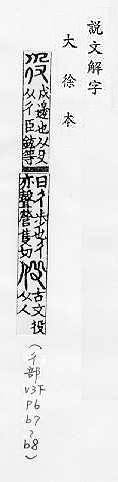 說文解字
大徐本
役 戍邊也从殳
从彳臣鉉等
曰彳步也彳
亦聲營隻切
伇 古文役
从人
(彳部
V3下
P6
b7
,
b8)